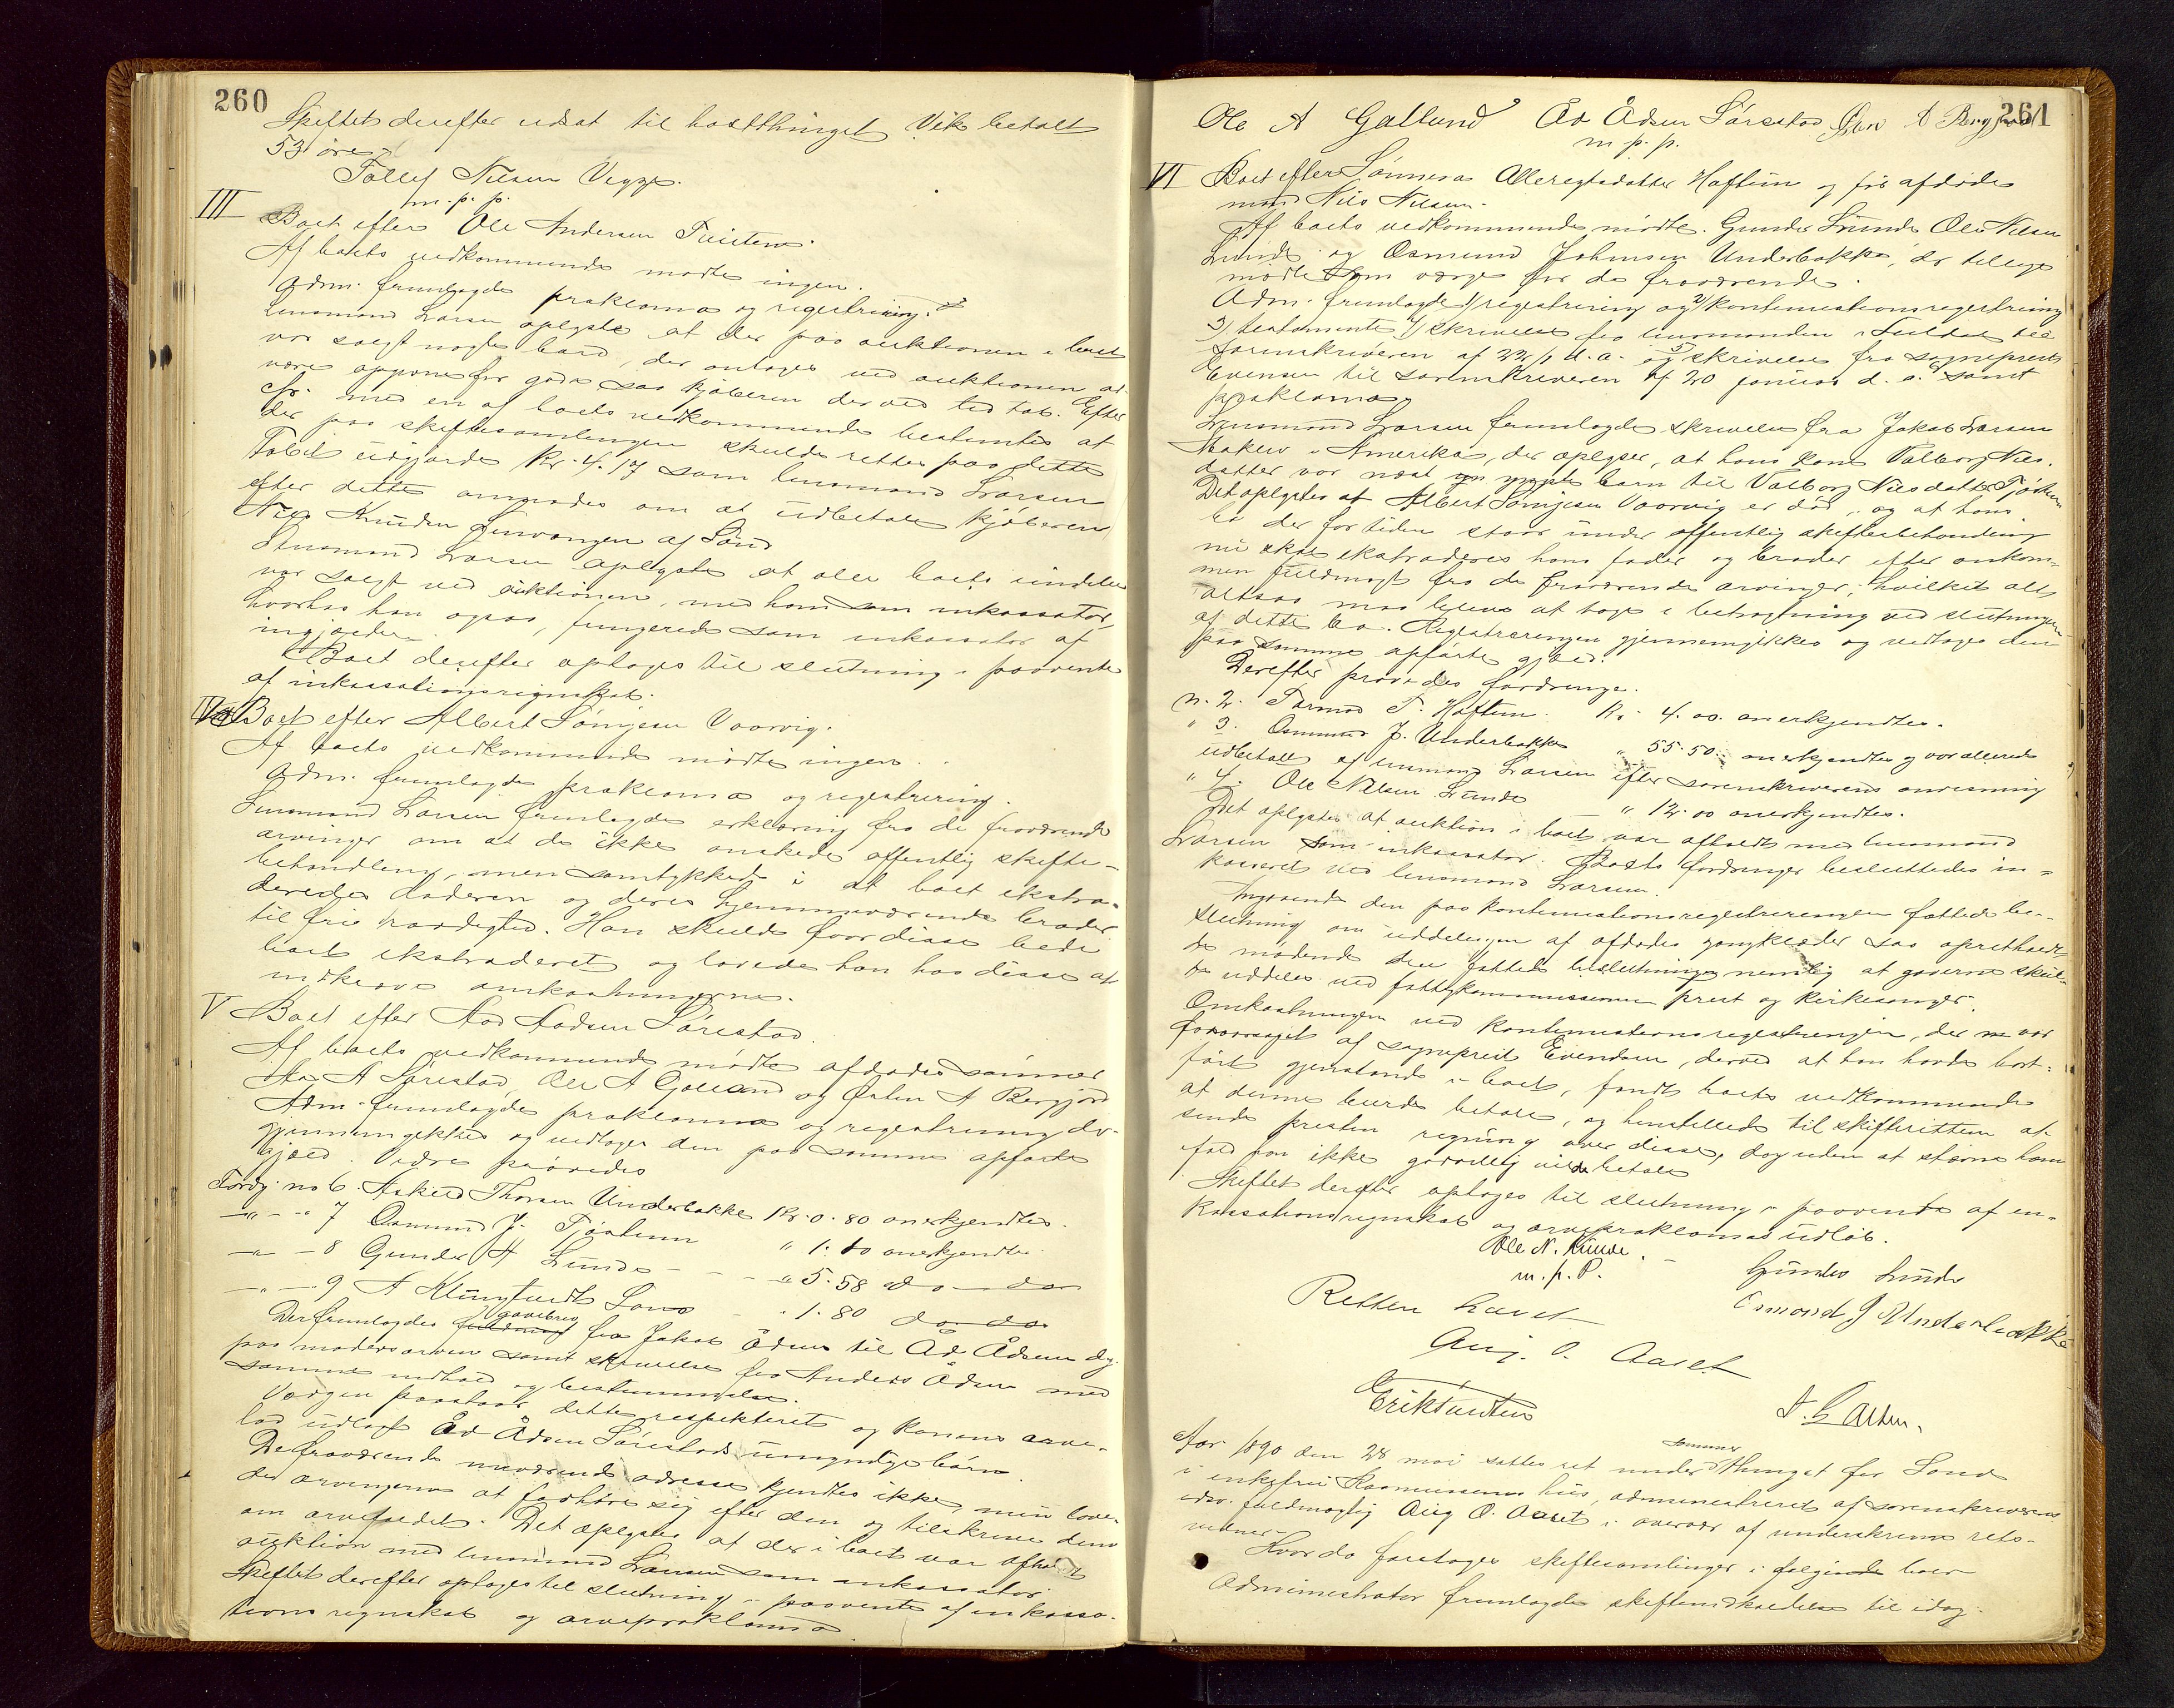 260
Skiftet derefter udsat til høstthinget Vik betalt
53 øre.
Tollef Nilsen Vegge.
m. p. p.
III Boet efter Ole Andersen Tvisten.
Af boets vedkommende mødte ingen.
Adm. fremlagde proklama og registrering.
Lensmand Larsen oplyste at der paa auktionen i boet
var solgt nogle bord, der antoges ved auktionen at
være for gode saa kjøberen derved led tab. Efter
med en af boets vedkommende bestemtes at
der paa skiftesamlingen skulde rettes paa dette
Tabet udgjorde Kr. 4.17 som lensmand Larsen
efter dette anmodes om at udbetale kjøberen
Nils Knudsen af Sand
Lensmand Larsen oplyste at alle boets eiendele
var solgt ved auktionen, med ham som inkassator,
hvorhos han ogsaa fungerede som inkassator af
ingjælden.
Boet derefter optoges til slutning i paavente
af inkassationsregnskab.
IV Boet efter Albert Sønjesen Vaarvig.
Af boets vedkommende mødte ingen.
Adm. fremlagde proklama og registrering.
Lensmand Larsen fremlagde erklæring fra de fraværende
arvinger om at de ikke ønskede offentlig skifte-
behandling, men samtykkede i at boet ekstra-
deredes faderen og deres hjemmeværende broder
til fri raadighed. Han skulde for disse bede
boet ekstraderet og lovede han hos disse at
indkræve omkostningerne.
V Boet efter Aad Aadsen Sørestad.
Af boets vedkommende mødte afdødes sønner
Aad A Sørestad, Ole A Galland og Østen A Bergjord
Adm. fremlagde proklama og registrering der
gjennemgikkes og vedtoges den paa samme opførte
gjæld. Videre prøvedes
Fordg. no 6. Askild Thorsen Underbakke Kr. 0.80 anerkjendtes.
" - " 7 Osmund J. Tjøstem " 1.80 anerkjendtes.
" - 8 Gunder H Lunde - - - " 5.58 do - do
" - 9 A Klungtvedt Sand - " 1.80 do do
Der fremlagdes gavebrev fra Jakob Ådsen til Åd Ådsen dy.
paa modersarven samt skrivelse fra Anders Ådsen med
samme indhold og bestemmelse.
Værgen paastod dette respekteret og konens arve-
lod udlagt Åd Ådsen Sørestads umyndige børn.
De fraværendes nuværende adresse kjendtes ikke, men love-
des arvingerne at forhøre sig efter den og tilskrive dem
om arvefaldet. Det oplystes at der i boet var afholdt
auktion med lensmand Larsen som inkassator.
Skiftet derefter optoges til slutning i paavente af inkassa-
tions regnskab og arveproklama.
261
Ole A Galland Åd Ådsen Sørestad Østen A Bergjord
m p. p.
VI Boet efter Sønneva Alleregtsdatter Haftun og før afdøde
mand Nils Nilsen.
Af boets vedkommende mødte Gunder Lunde Ole Nilsen
Lunde og Osmund Johnsen Underbakke, der tillige
mødte som værge for de fraværende.
Adm. fremlagde 1/ registrering og 2/ kontinuationsregistrering
3/ testamente 4/ skrivelse fra lensmanden i Suldal til
sorenskriveren af 22/1 d. a. og 5 skrivelse fra sogneprest
Evensen til sorenskriveren af 20 januar d. a. samt
proklama.
Lensmand Larsen fremlagde skrivelse fra Jakob Larsen
i Amerika, der oplyser, at hans kone Valborg Nils-
datter var næst yngste barn til Valborg Nilsdatter Tjøstem
Det oplystes at Albert Sønjesen Vaarvig er død, og at hans
bo der for tiden staar under offentlig skiftebehandling
nu skal ekstraderes hans fader og broder efter ankom-
men fuldmagt fra de fraværende arvinger, hvilket alt
altsaa maa blive at tage i betragtning ved slutningen
af dette bo. Registreringen gjennemgikkes og vedtoges den
paa samme opførte gjæld.
Derefter prøvedes fordringe.
n. 2. Tormod T. Haftun. Kr. 4.00. anerkjendtes.
" 3. Osmund J. Underbakke " 55.50. anerkjendtes og var allerede
udbetalt af lensmand Larsen efter sorenskriverens anvisning
" 4. Ole Nilsen Lunde " 12.00 anerkjendtes.
Det oplystes at auktion i boet var afholdt med lensmand
Larsen som inkassator. Boets fordringer besluttedes in-
kasseret ved lensmand Larsen.
Angaaende den paa kontinuationsregistreringen fattede be-
slutning om uddelingen af afdødes gangklæder saa opretholdt
de mødende den fattede beslutning nemlig at gaverne skul-
de uddeles ved fattigkommissionen prest og kirkesanger.
Omkostningen ved kontinuationsregistreringen, der var
foraarsaget af sogneprest Evensen, derved at han havde bort-
ført gjenstande i boet, fandt boets vedkommende
at denne burde betale, og henstilledes til skifteretten at
sende presten regning over disse, dog uden at stævne ham
ifald han ikke godvillig vilde betale
Skiftet derefter optoges til slutning i paavente af in-
kassationsregnskab og arveproklamas udløb.
Ole N. Lunde.
m. p. P. Gunder Lunde
Retten hævet Osmond J Underbakke
Aug. O. Aaset
Erik Tvisten
Aar 1890 den 28 mai sattes ret under sommerthinget for Sand
i enkefru Rasmussens hus, administreret af sorenskriverens
edsv. fuldmægtig Aug O. Aaset i overvær af underskrevne rets-
vidner.
Hvor da foretoges skiftesamlinger i følgende boer
Administrator fremlagde skifteindkaldelse til idag.